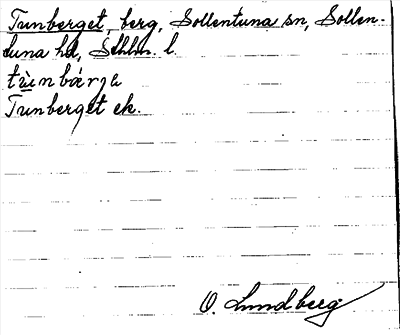 Tunberget, berg, Sollentuna sn, Sollen-
tuna hd, Sthlm. l.
tu̠nbárja
Tunberget ek.
O. Lundberg